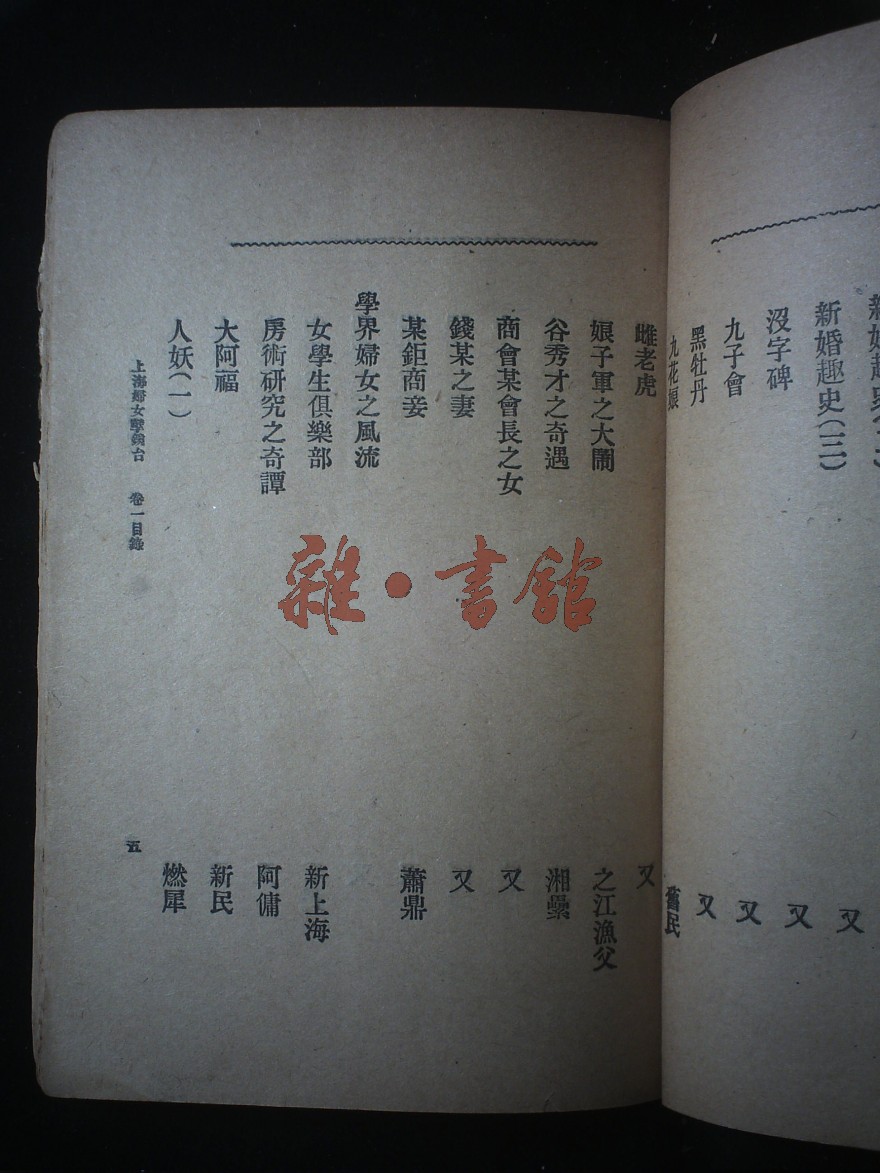 新婚趣史(三)
又
沒字碑
又
九子會
又
黑牡丹
又
九花娘
舊民
雌老虎
又
娘子軍之大鬧
之江漁父
谷秀才之奇遇
湘纍
商會某會長之女
又
錢某之妻
又
某鉅商妾
蕭鼎
學界婦女之風流
女學生俱樂部
新上海
房術研究之奇譚
阿傭
大阿福
新民
人妖(一)
燃犀
上海婦女孽鏡台 卷一目錄
五
雜·書館